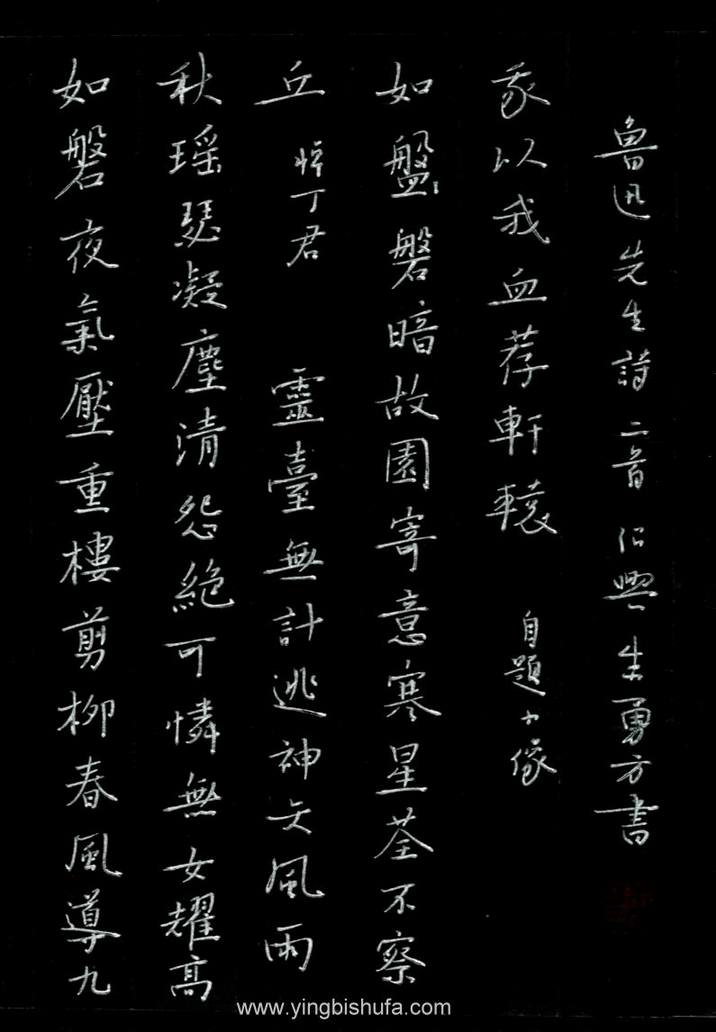 如磐夜氣壓重樓剪柳春風導九
秋瑤瑟凝塵清怨絕可憐無女耀高
丘 悼丁君 靈臺無計逃神矢風雨
如盤磐暗故園寄意寒星荃不察
我以我血荐軒轅 自題小像
魯迅先生詩二首 紹興朱勇方書
www.yingbishufa.com